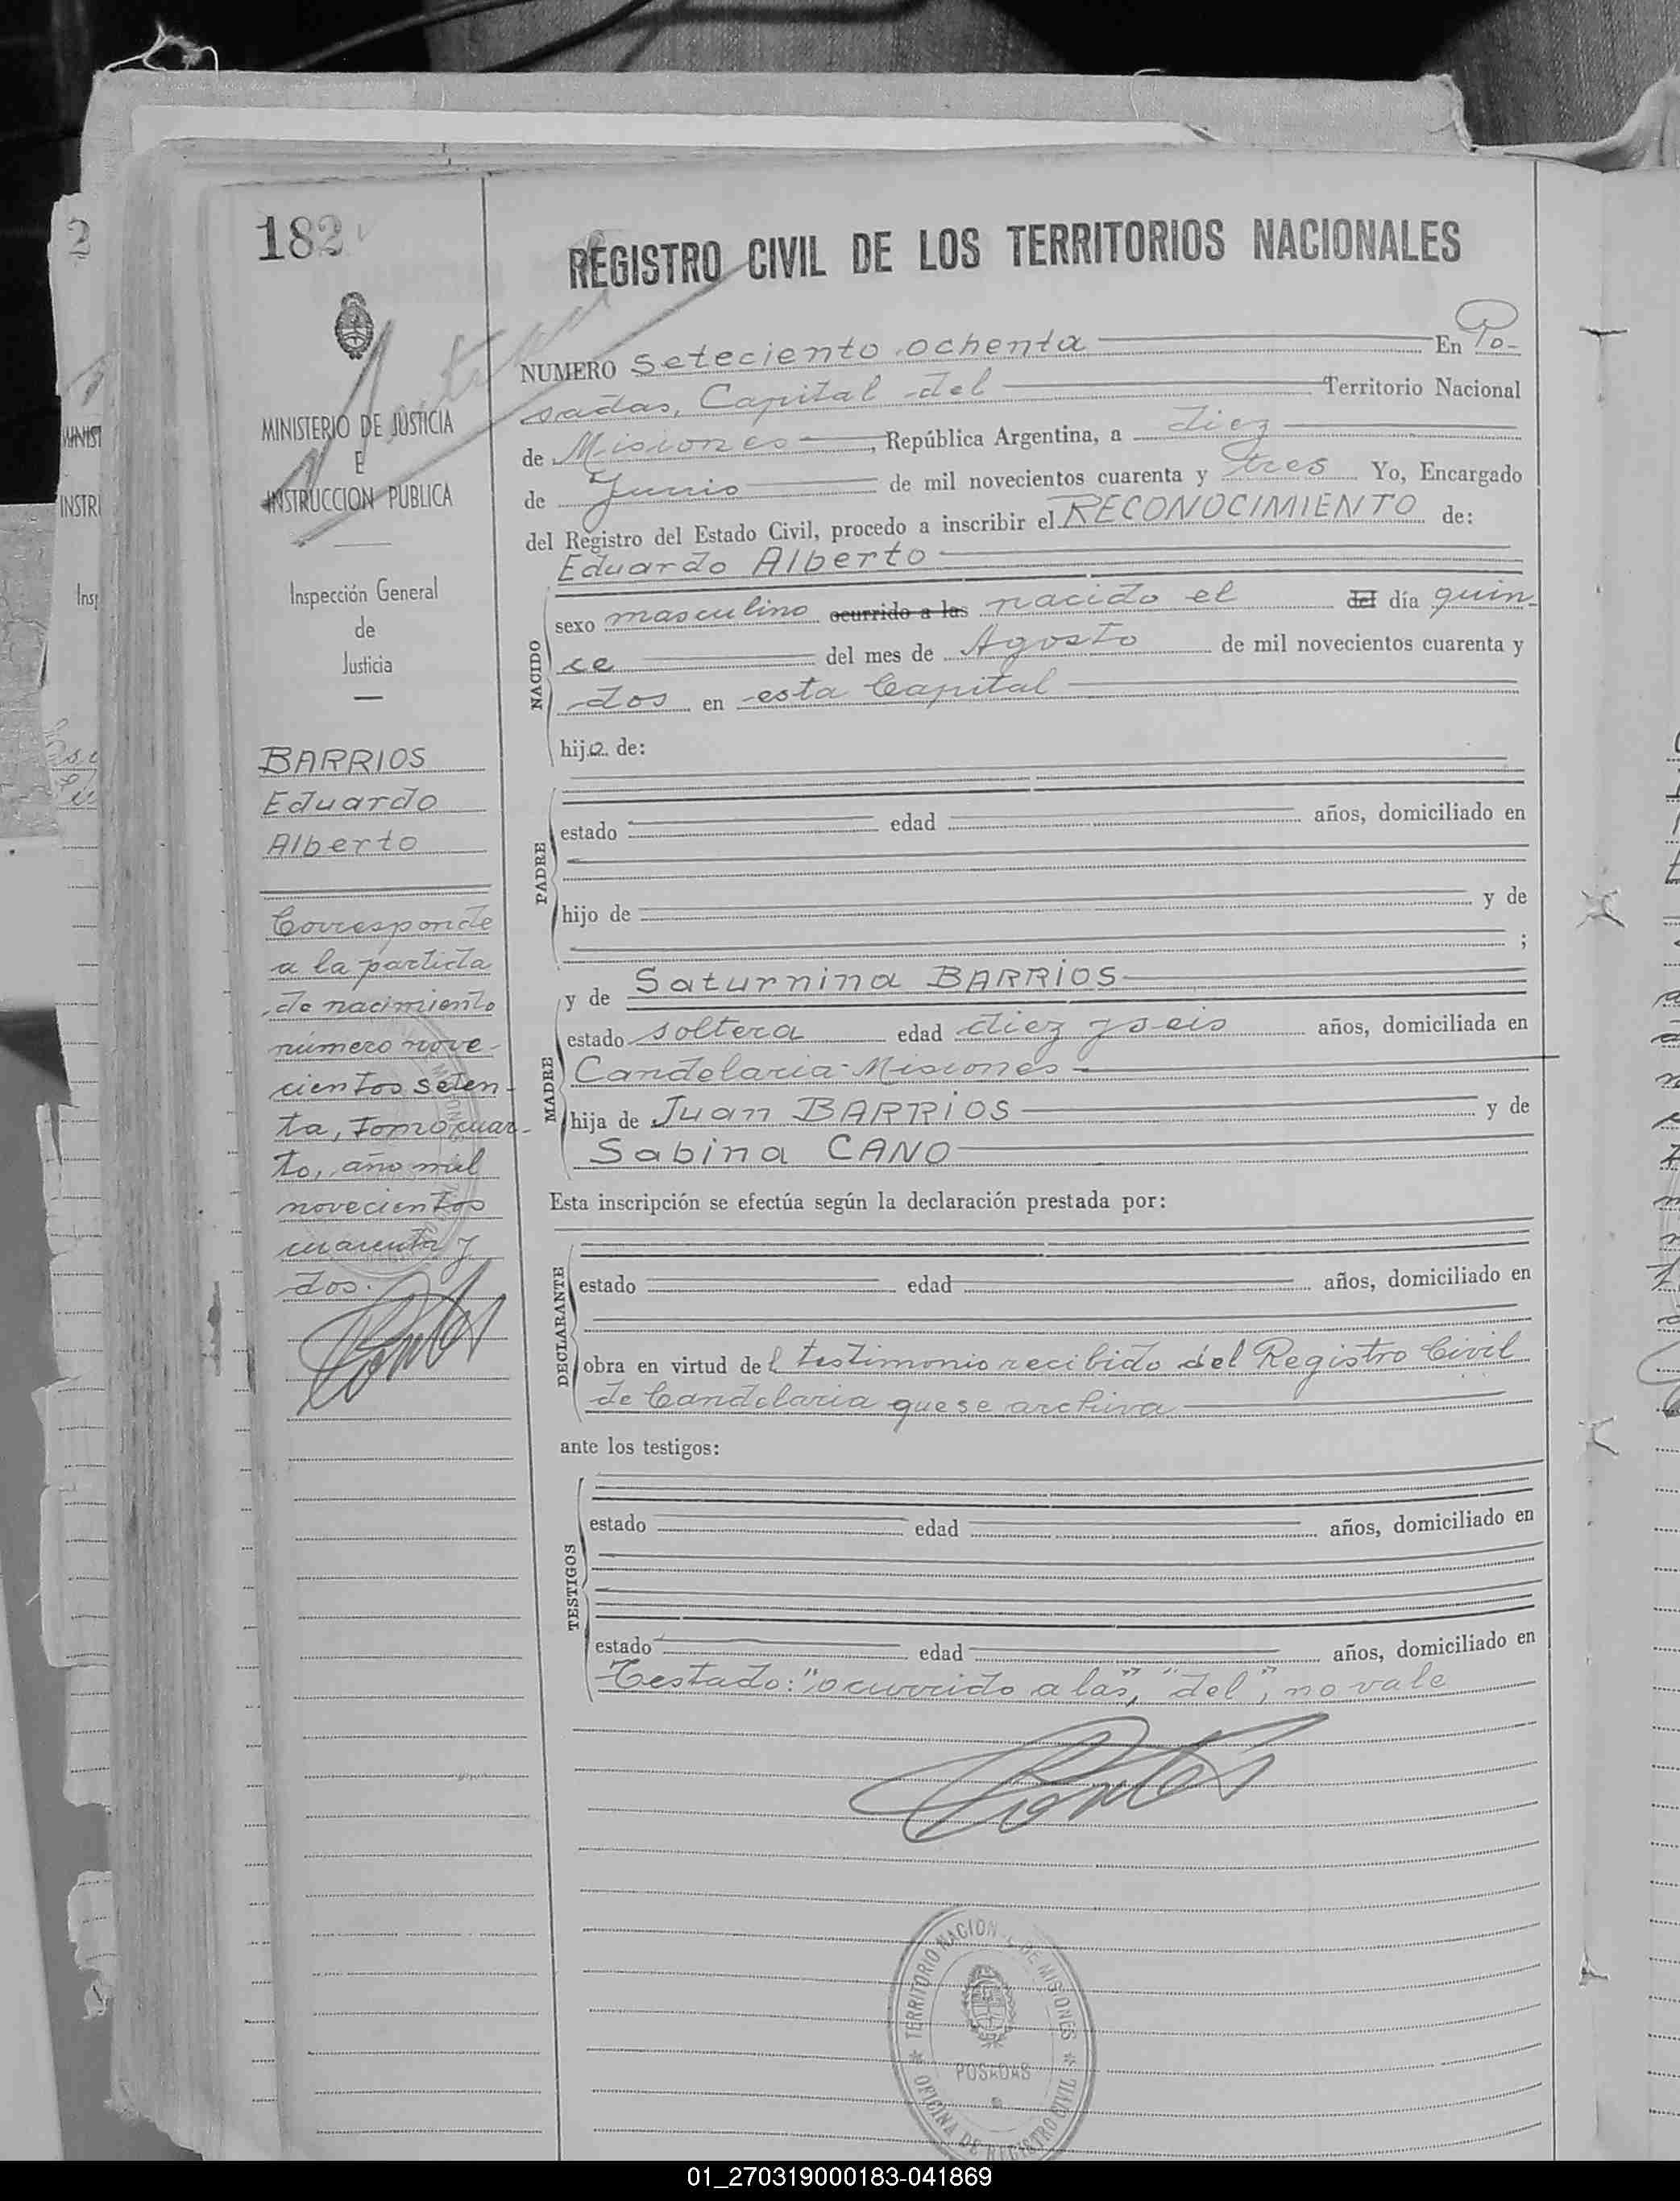 182
REGISTRO CIVIL DE LOS TERRITORIOS NACIONALES
MINISTERIO DE JUSTICIA
E
INSTRUCCION PUBLICA
Inspección General
de
Justicia
BARRIOS
Eduardo
Alberto
Corresponde
a la partida
de nacimiento
número nove-
cientos seten-
ta, tomo cuar-
to, año mil
novecientos
cuarenta y
dos.
NUMERO Seteciento ochenta En Po-
sadas, Capital del Territorio Nacional
de Misiones, República Argentina, a diez
de Junio de mil novecientos cuarenta y tres Yo, Encargado
del Registro del Estado Civil, procedo a inscribir el RECONOCIMIENTO de:
Eduardo Alberto
NACIDO
sexo masculino ocurrido a las nacido el del día quin-
ce del mes de Agosto de mil novecientos cuarenta y
dos en esta Capital
hijo de:
PADRE
estado edad años, domiciliado en
hijo de y de
;
MADRE
y de Saturnina BARRIOS
estado soltera edad diez y seis años, domiciliada en
Candelaria-Misiones
hija de Juan BARRIOS y de
Sabina CANO
Esta inscripción se efectúa según la declaración prestada por:
DECLARANTE
estado edad años, domiciliado en
obra en virtud del testimonio recibido del Registro Civil
de Candelaria que se archiva
ante los testigos:
TESTIGOS
estado edad años, domiciliado en
estado edad años, domiciliado en
Testado: "ocurrido a las", "del", no vale
TERRITORIO NACIONAL DE MISIONES
POSADAS
OFICINA DE REGISTRO CIVIL
01_270319000183-041869